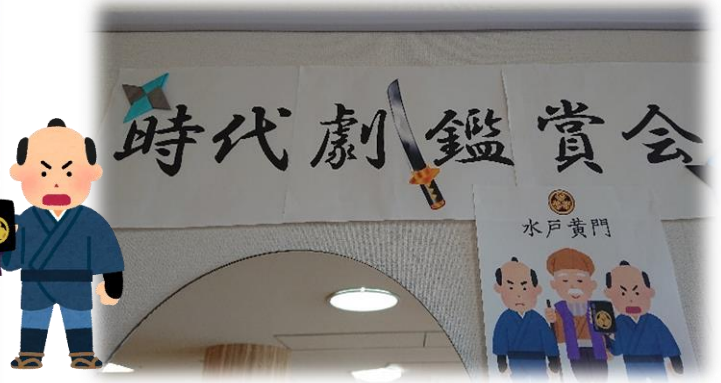 時代劇鑑賞会
水戸黄門